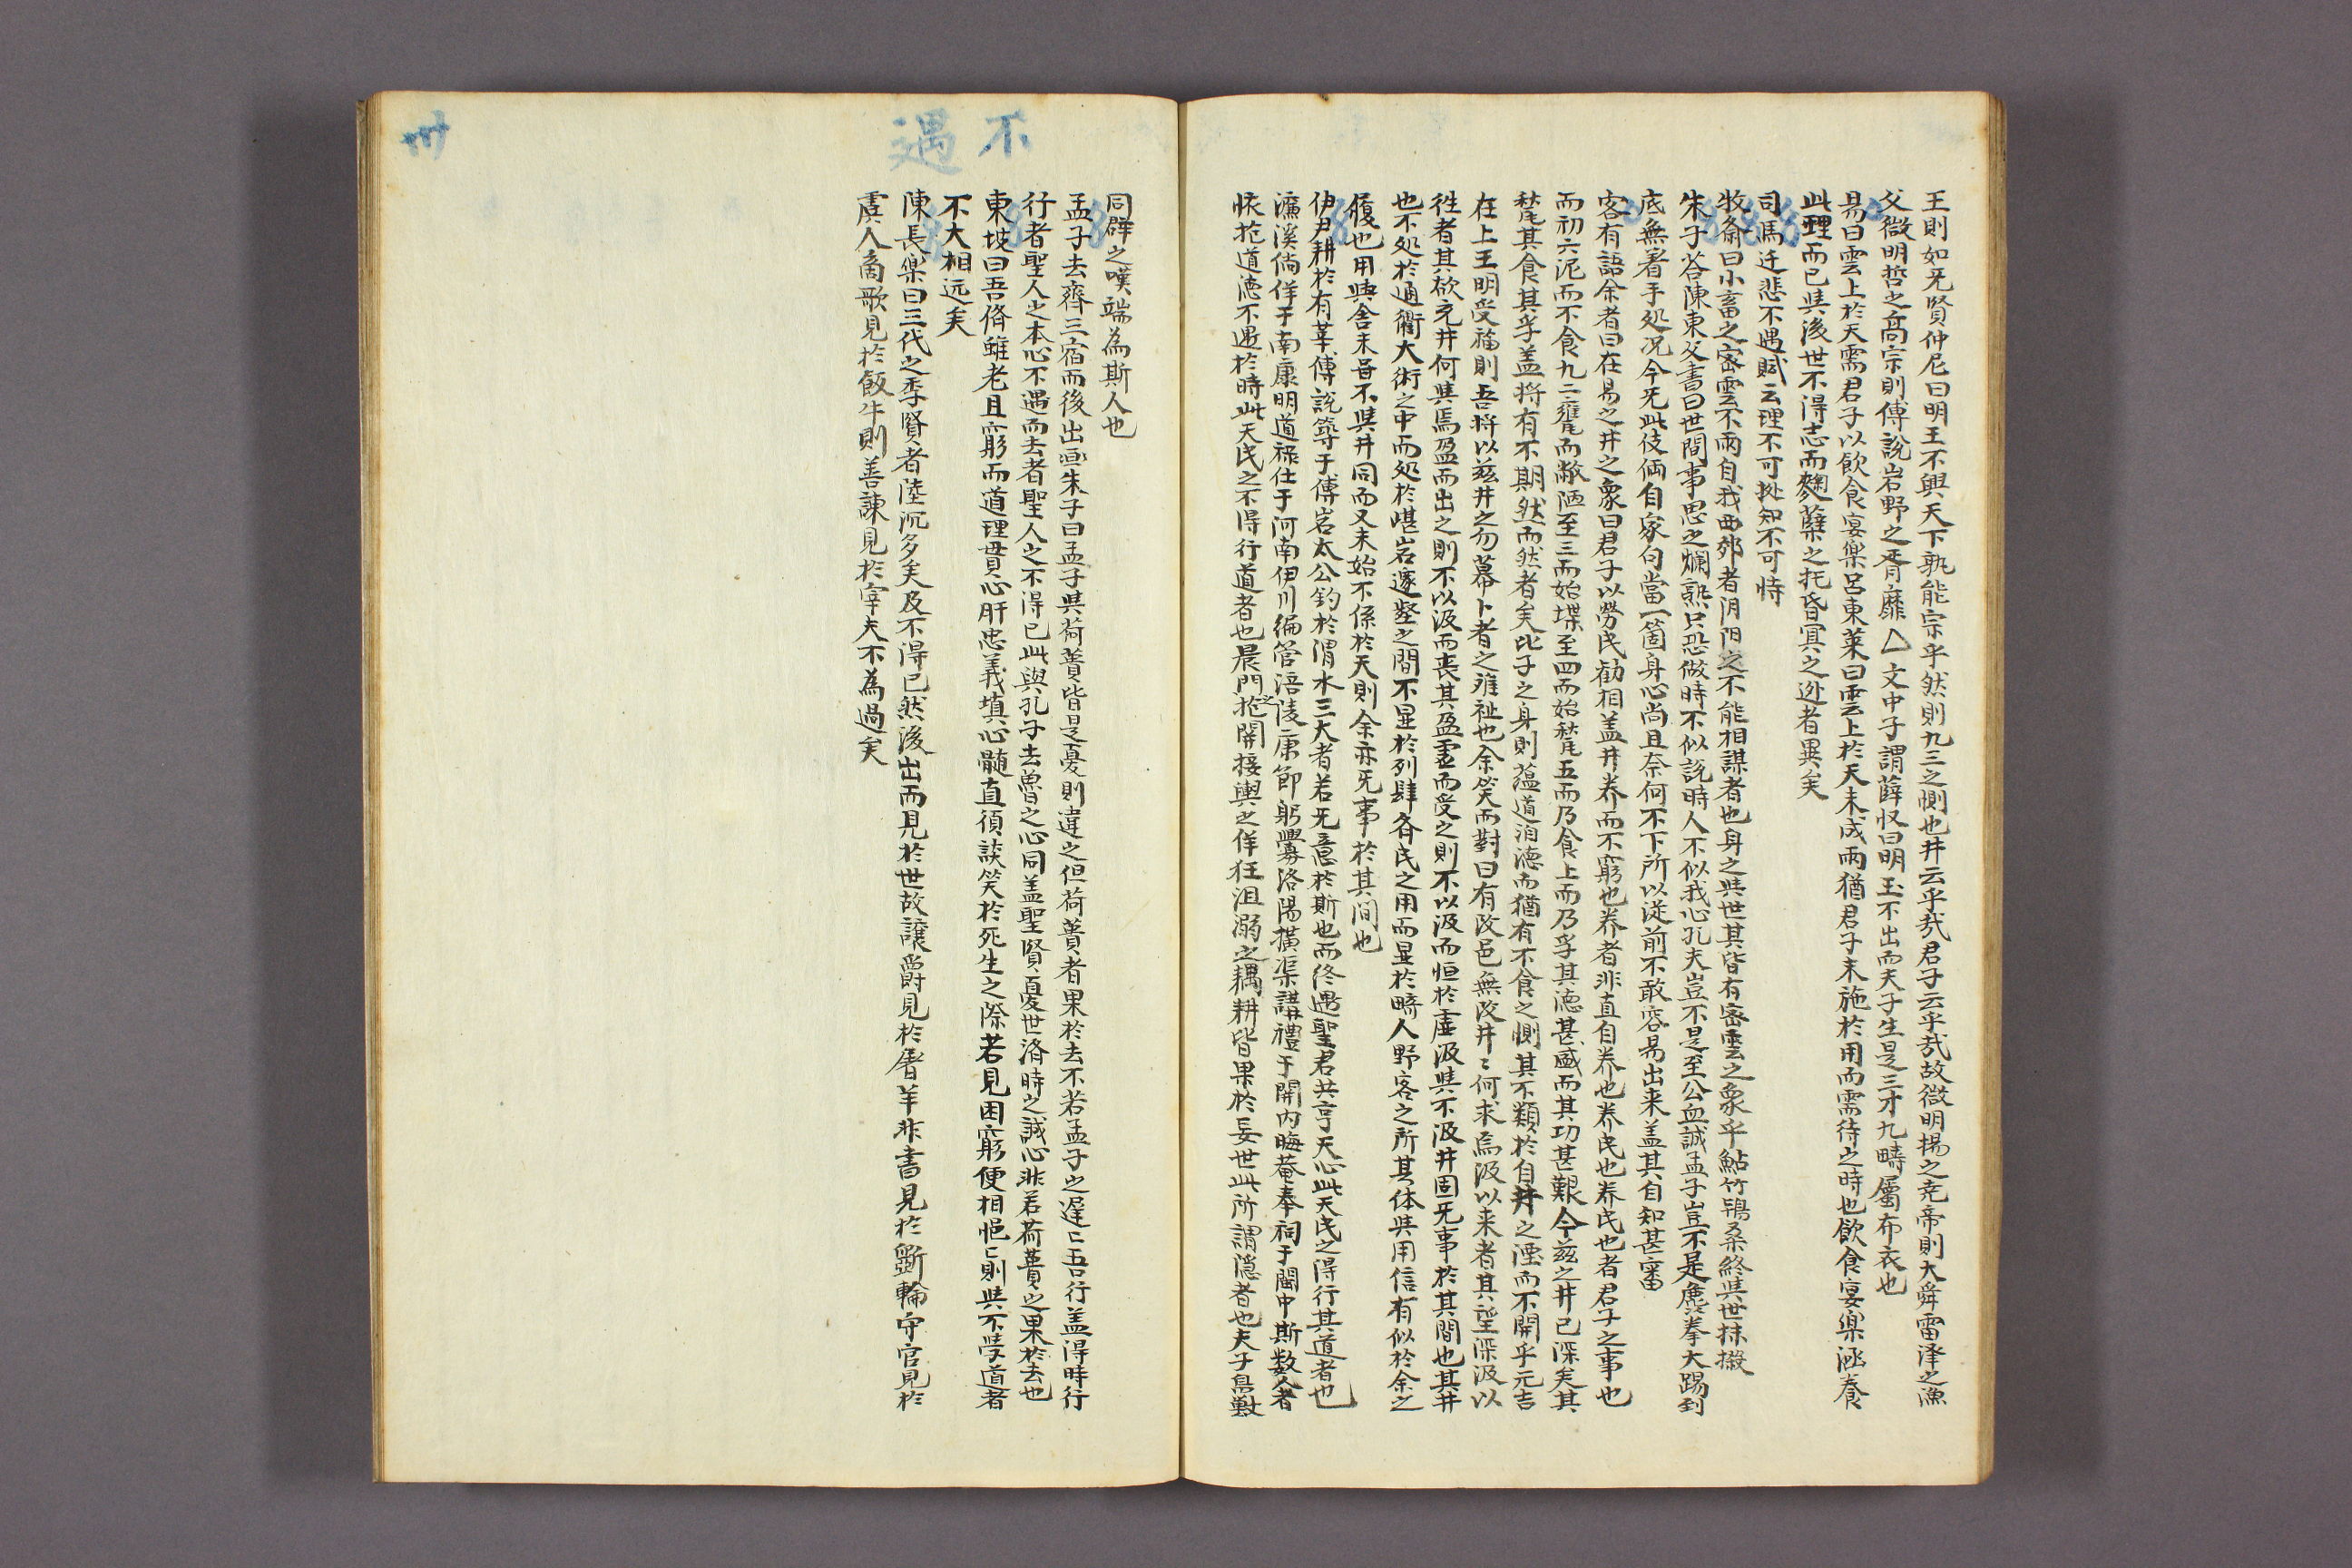 王則如旡賢仲尼曰明王不興天下孰能宗乎然則九三之惻也井云乎㢤君子云乎㢤故徵明揚之堯帝則大舜雷泽之漁
父徵明哲之高宗則傅說岩野之胥靡△文中子謂薛收曰明玉不出而夫子生是三才九疇屬布衣也
易曰雲上於天需君子以飲食宴樂呂東莱曰雲上於天未成雨猶君子未施於用而需待之時也飲食宴樂涵養
此理而已㒷後世不得志而麴蘖之托昏冥之迯者異矣
司馬迁悲不遇賦云理不可㩀知不可恃
牧翁曰小畜之密雲不雨自我西郊者阴阳之不能相謀者也身之㒷世其皆有密雲之象乎鮎竹鴇桑終㒷世抹摋
朱子荅陳東父書曰世間事思之爛熟只恐做時不似說時人不似我心孔夫豈不是至公血誠孟子豈不是麁拳大踢到
底無著手処况今旡此伎俩自家勾當一箇身心尚且奈何不下所以從前不敢容易出来盖其自知甚審
客有語余者曰在易之井之象曰君子以勞民勸相盖井养而不窮也养者非直自养也养民也养民也者君子之事也
而初六泥而不食九二甕而敝陋至三而始堞至四而始甃五而乃食上而乃孚其德甚盛而其功甚艱今兹之井已深矣其
甃其食其孚盖将有不期然而然者矣比子之身則蕴道洎德而猶有不食之惻其不類於自井之湮而不開乎元吉
在上王明受福則吾将以兹井之勿幕卜者之雍祉也余笑而對曰有改邑無改井〻何求焉汲以来者其望深汲以
徃者其欲充井何㒷焉盈而出之則不以汲而丧其盈虚而受之則不以汲而恒於虚汲㒷不汲井固旡事於其間也其井
也不処於通衢大術之中而処於嵁岩邃壑之間不显於列肆各民之用而显於畸人野客之所其体㒷用信有似於余之
履也用㒷舍未甞不㒷井同而又未始不係於天則余亦旡事於其间也
伊尹耕於有莘傅說築于傅岩太公釣於渭水三大者若旡意於斯也而終遇聖君共亨天心此天民之得行其道者也
濂溪倘佯于南康明道祿仕于河南伊川编管涪陵康節躬㸑洛陽橫渠講禮于関内晦菴奉祠于閩中斯数人者
恢抱道德不遇於時此天民之不得行道者也晨門抱関接輿之佯狂沮溺之耦耕皆果於忘世此所謂隱者也夫子鳥獸
不遇
同群之嘆端為斯人也
孟子去齊三宿而後出画朱子曰孟子㒷荷蕢皆是憂則違之但荷蕢者果於去不若孟子之遅〻吾行盖得時行
行者聖人之本心不遇而去者聖人之不得已此與孔子去魯之心同盖聖賢憂世済時之誠心非若荷蕢之果於去也
東坡曰吾俻雖老且窮而道理貫心肝忠義填心髓直須談笑於死生之際若見困窮便相悒〻則㒷不学道者
不大相远矣
陳長樂曰三代之季賢者陸沉多矣及不得已然後出而見於世故讓爵見於屠羊非書見於斲輪守官見於
虞人啇歌見於飯牛則善諫見於宰夫不為過矣
卅